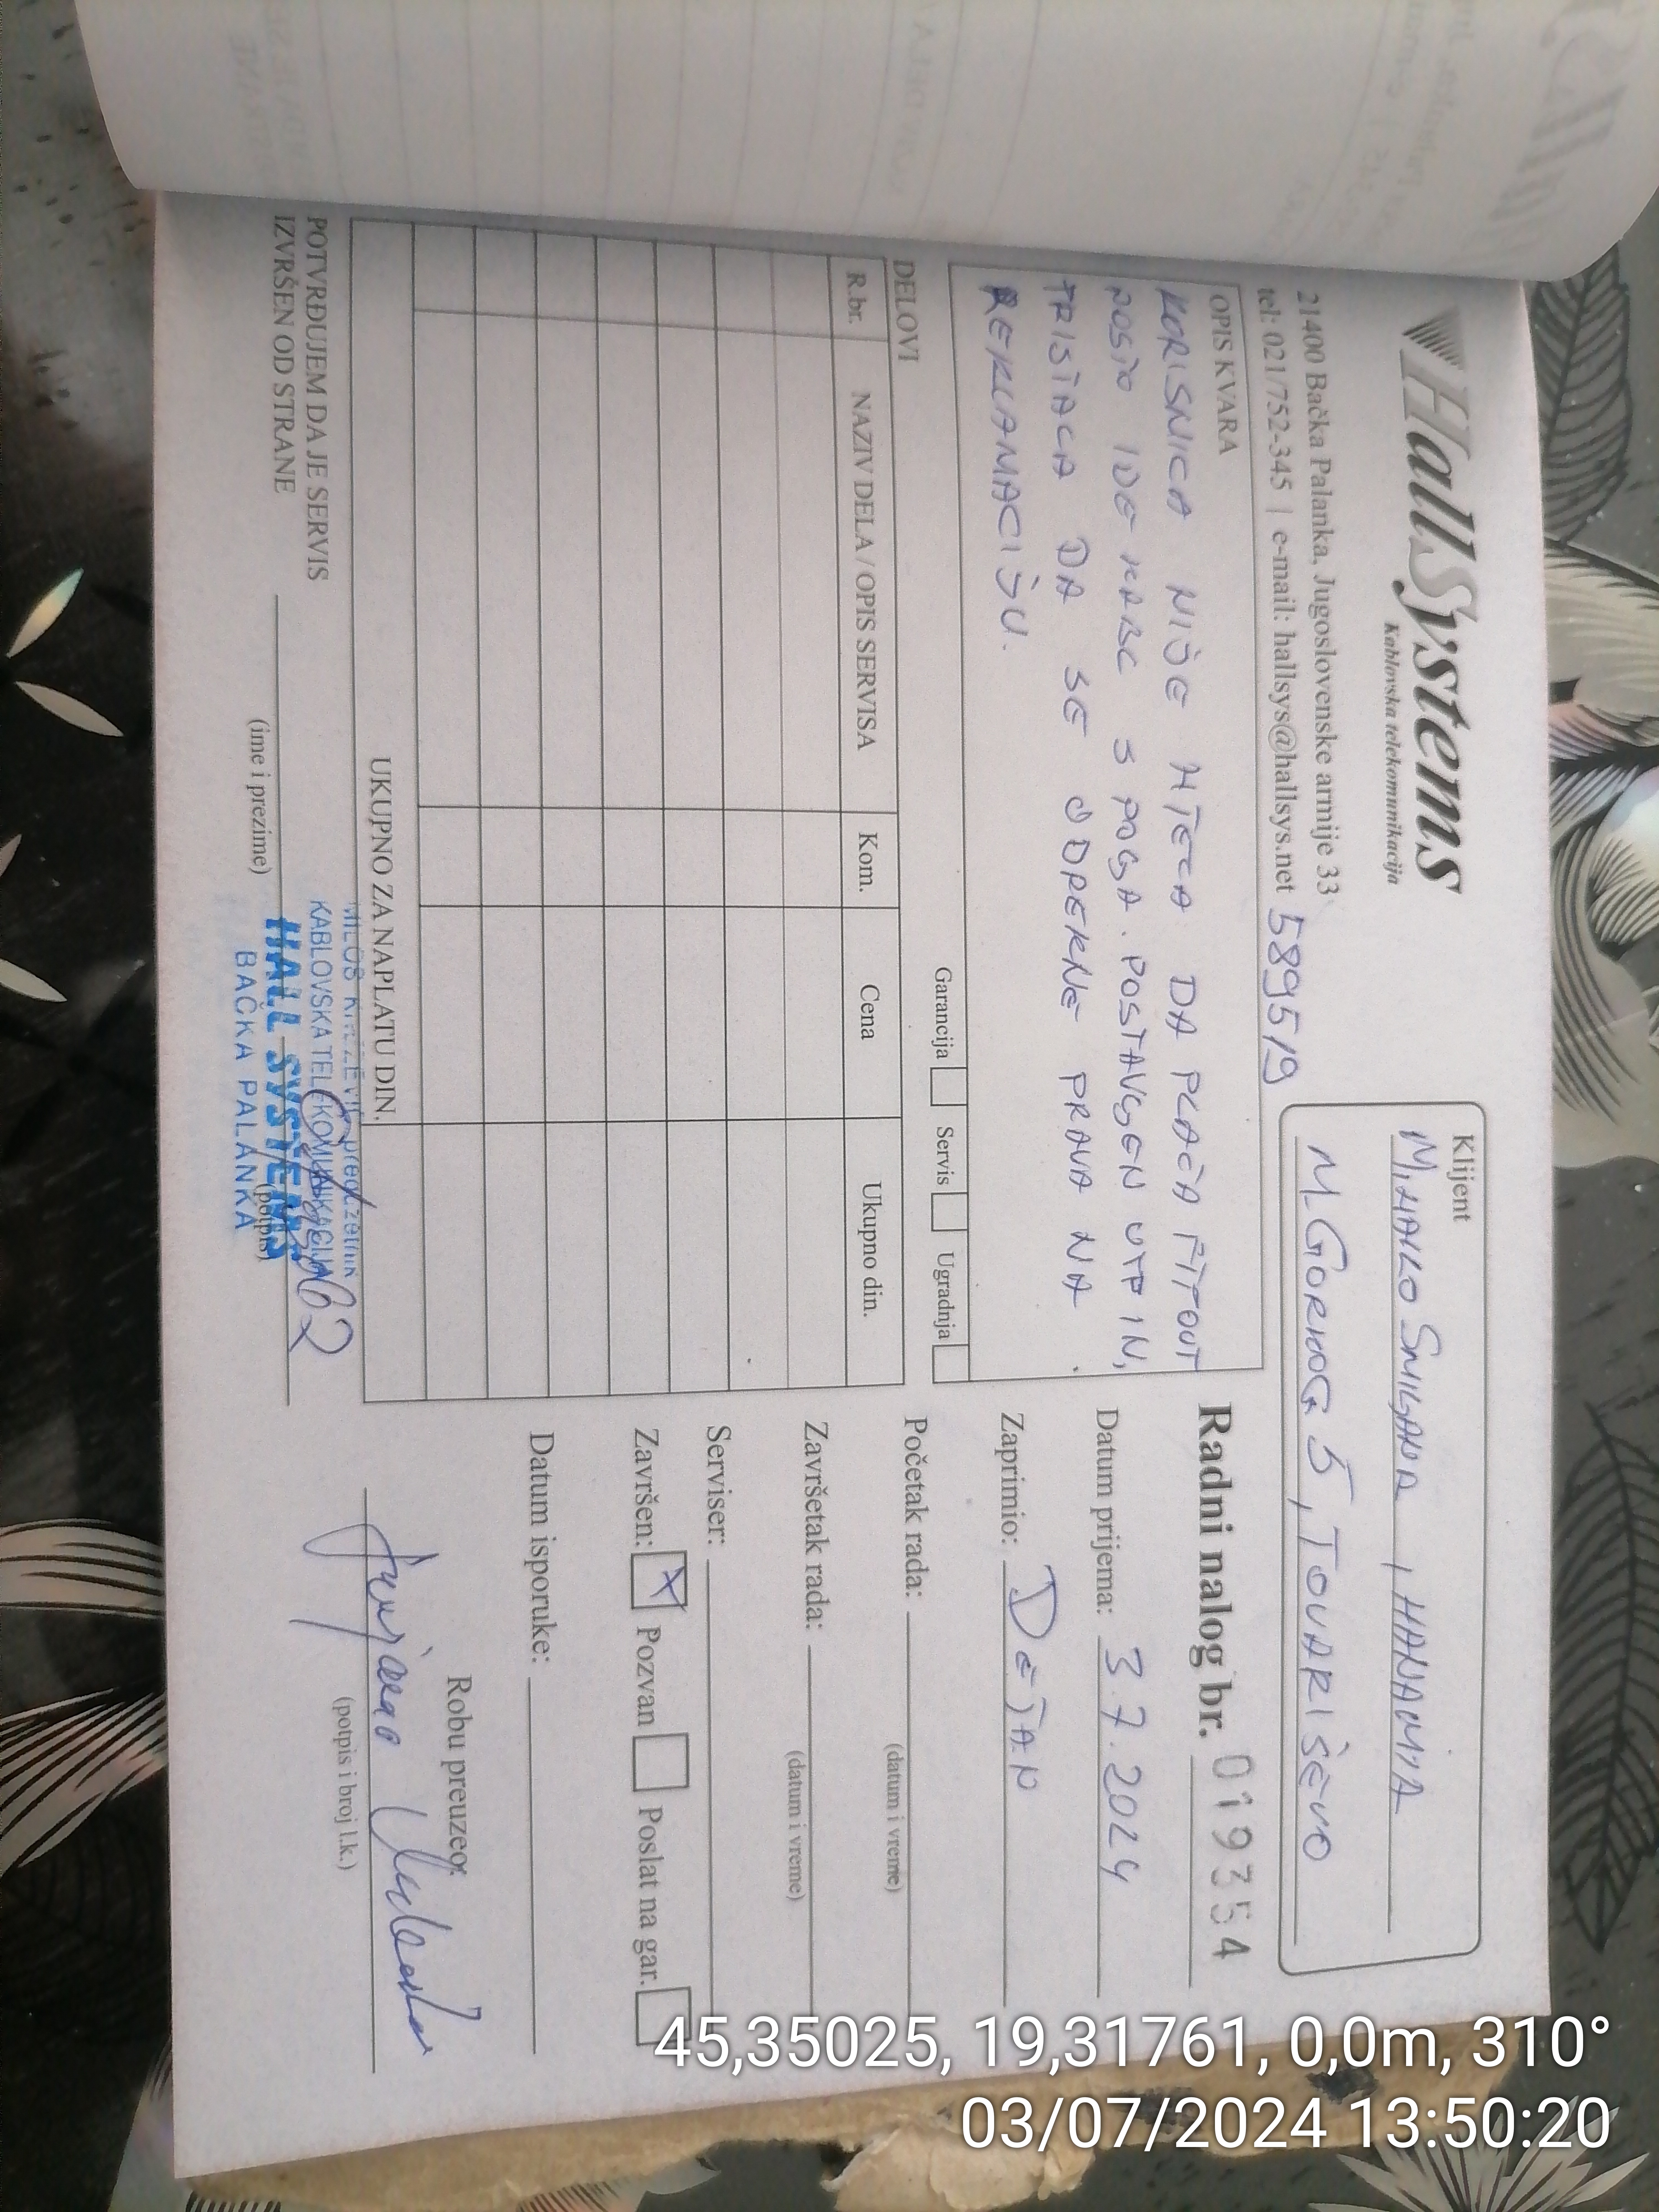 HallSystems
Kablovska telekomunikacija
21400 Bačka Palanka, Jugoslovenske armije 33
tel: 021/752-345 | e-mail: hallsys@hallsys.net 589519
Klijent
MIHAILO SMILJANA, HANAMIA
M. GORKOG 5, TOVARIŠEVO
OPIS KVARA
KORISNICA NIJE HTELA DA PLAĆA FITOUT
POŠTO IDE KABL S POGA. POSTAVLJEN UTP IN,
TRISTACA DA SE ODREKNE PRAVA NA
REKLAMACIJU.
Garancija Servis Ugradnja
DELOVI
R.br. NAZIV DELA / OPIS SERVISA Kom. Cena Ukupno din.
UKUPNO ZA NAPLATU DIN.
POTVRĐUJEM DA JE SERVIS
IZVRŠEN OD STRANE
(ime i prezime) (potpis)
MILOŠ KNEŽEVIĆ preduzetnik
KABLOVSKA TELEKOMUNIKACIJA
HALL SYSTEMS
BAČKA PALANKA
Radni nalog br. 019354
Datum prijema: 3.7.2024
Zaprimio: DEJAN
Početak rada:
(datum i vreme)
Završetak rada:
(datum i vreme)
Serviser:
Završen: X Pozvan Poslat na gar.
Datum isporuke:
Robu preuzeo:
(potpis i broj l.k.)
45,35025, 19,31761, 0,0m, 310°
03/07/2024 13:50:20